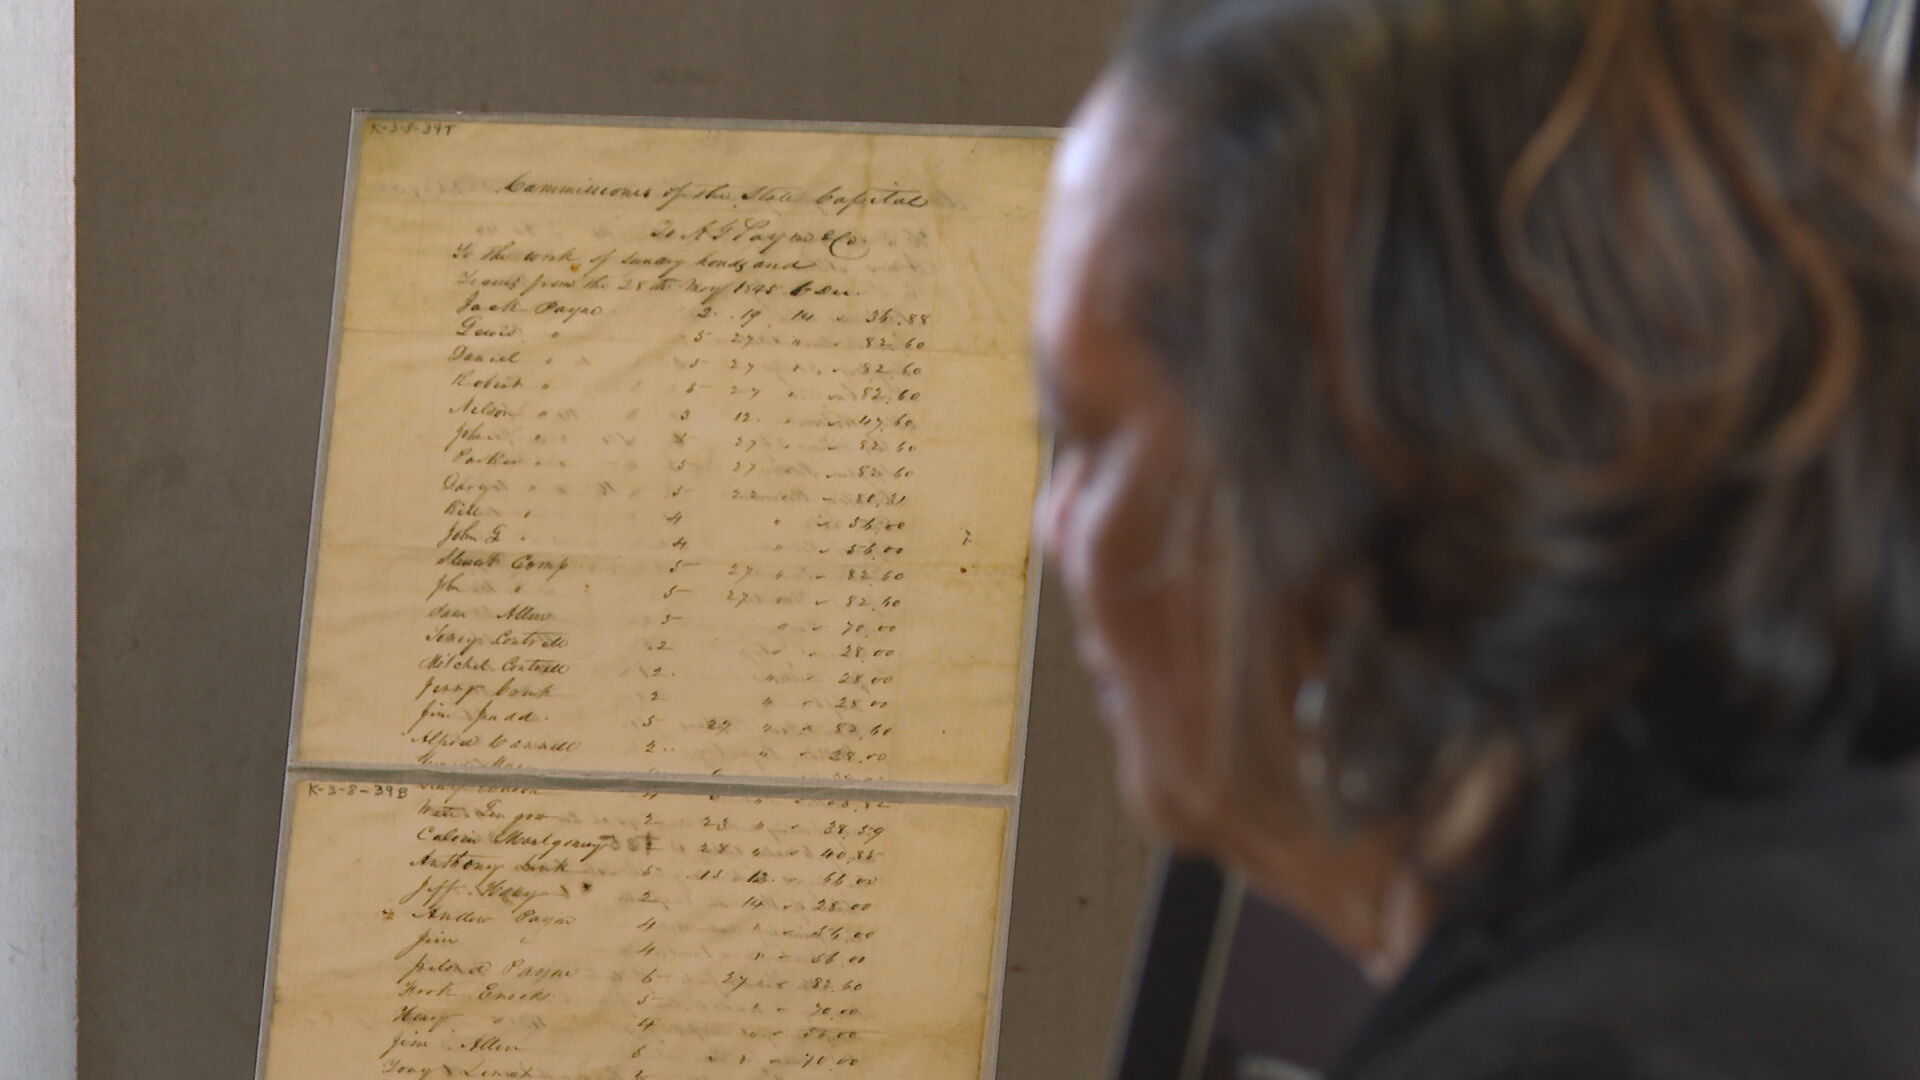 K-3-8-39T
Commissioner of the State Capital
To A G Payne & Co.
To the work of sundry hands and
Teams from the 28th May 1845 to Dec.
Jack Payne. 2. 19 14 " 36.88
Lewis " 5 27 " " 82.60
Daniel " 5 27 " " 82.60
Robert " 5 27 " " 82.60
Nelson " 3 12. " 47.60
John " 27 " " 82.60
Parker " 5 27 " 82.60
" 5 22 " 80.31
Bill " 4 " " 56.00
John G " 4 " " 56.00
Stewart Comp 5 27 " " 82.60
John " 5 27 " " 82.60
Sam Allen 5 " " 70.00
2 " 28.00
Mitchel 2. " 28.00
Jerry 2 " " 28.00
Jim Judd. 5 27 " " 82.60
Alfred 2 " " 28.00
K-3-8-39B
2 23 " " 38.59
Calvin Montgomery 28 " " 40.85
Anthony 15 12 " 66.00
Jeff 2 14 " 28.00
Andrew Payne 4 " " 56.00
Jim " 4 " " 56.00
Payne 27 " 82.60
5 " 70.00
Henry " 4 " " 56.00
Jim Allen 5 " " 70.00
Tony